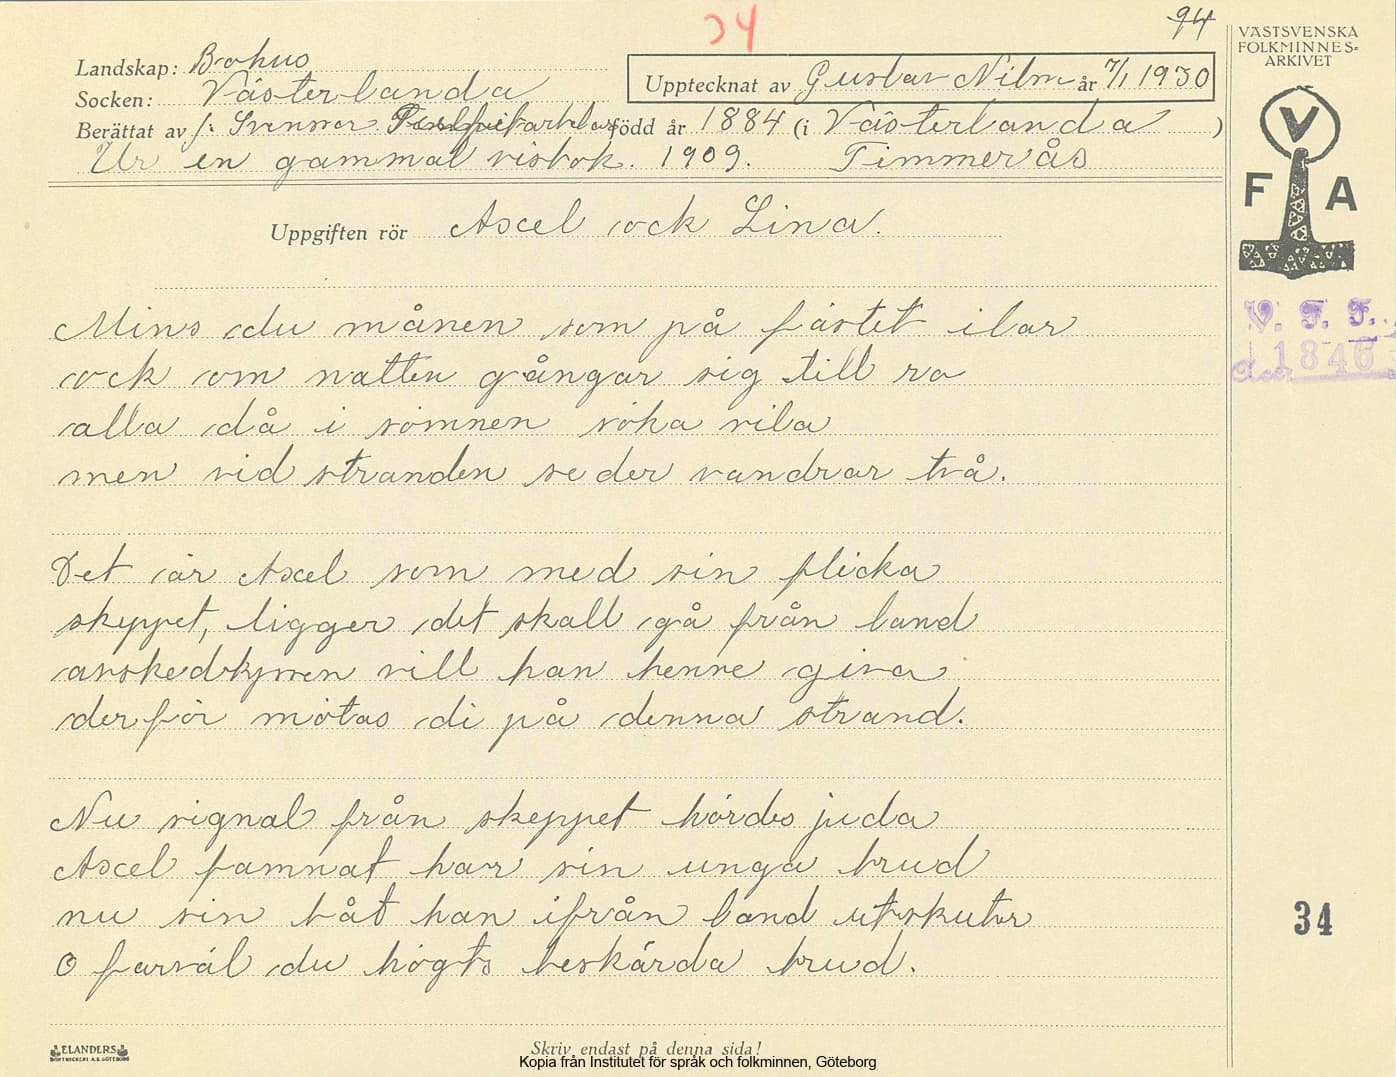 34
94
VÄSTSVENSKA
FOLKMINNES=
ARKIVET
Landskap: Bohus
Socken: Västerlanda
Upptecknat av Gustav Nilm år 7/1 1930
Berättat av f: Svensson född år 1884 (i Västerlanda )
Ur en gammal visbok. 1909. Timmerås
V
F A
Uppgiften rör Axel ock Lina.
V. F. F.
1846
Mins du månen som på fästet ilar
ock om natten gångar sig till ro
alla då i sömnen söka vila
men vid stranden se der vandrar två.
Det är Axel som med sin flicka
skeppet, ligger det skall gå från land
avskedskyssen vill han henne giva
derför mötas di på denna strand.
Nu signal från skeppet hördes juda
Axel famnat har sin unga brud
nu sin båt han ifrån land utskuter
O farväl du högts beskärda brud.
34
ELANDERS
BOKTRYCKERI A.B. GÖTEBORG
Skriv endast på denna sida!
Kopia från Institutet för språk och folkminnen, Göteborg